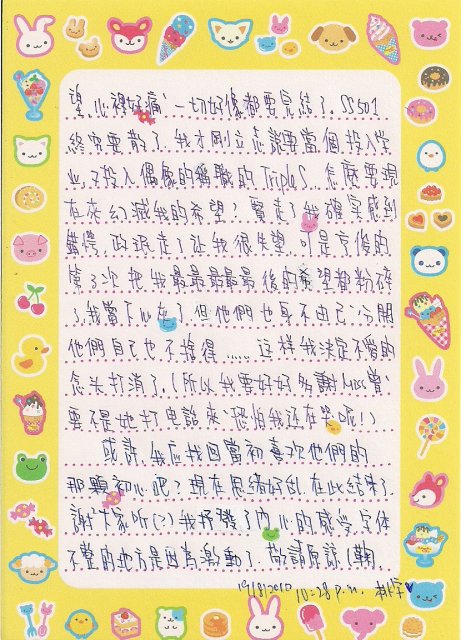 望,心裡好痛,一切好像都要完結了. SS501
終究要散了.我才剛立志說要當個投入學
業,又投入偶像的稱職的 Triple S. 怎麼要現
在在幻滅我的希望?賢走了我確實感到
錯愕,政珉走了讓我很失望,可是亨俊的
第3次把我最最最最最後的希望都粉碎
了,我當下心在了.但他們也身不由己,分開
他們自己也不捨得......這样我決定不愛的
念头打消了.(所以我要好好多謝Miss 曾,
要不是她打電話來,恐怕我還在哭呢!)
或許,我应找回當初喜欢他們的
那顆初心吧?現在思緒好乱,在此結束了.
謝大家听(?)我抒發了內心的感受.字体
不整的地方是因為激動了.敬請原諒(鞠
19/8/2010 10:28 p.m.